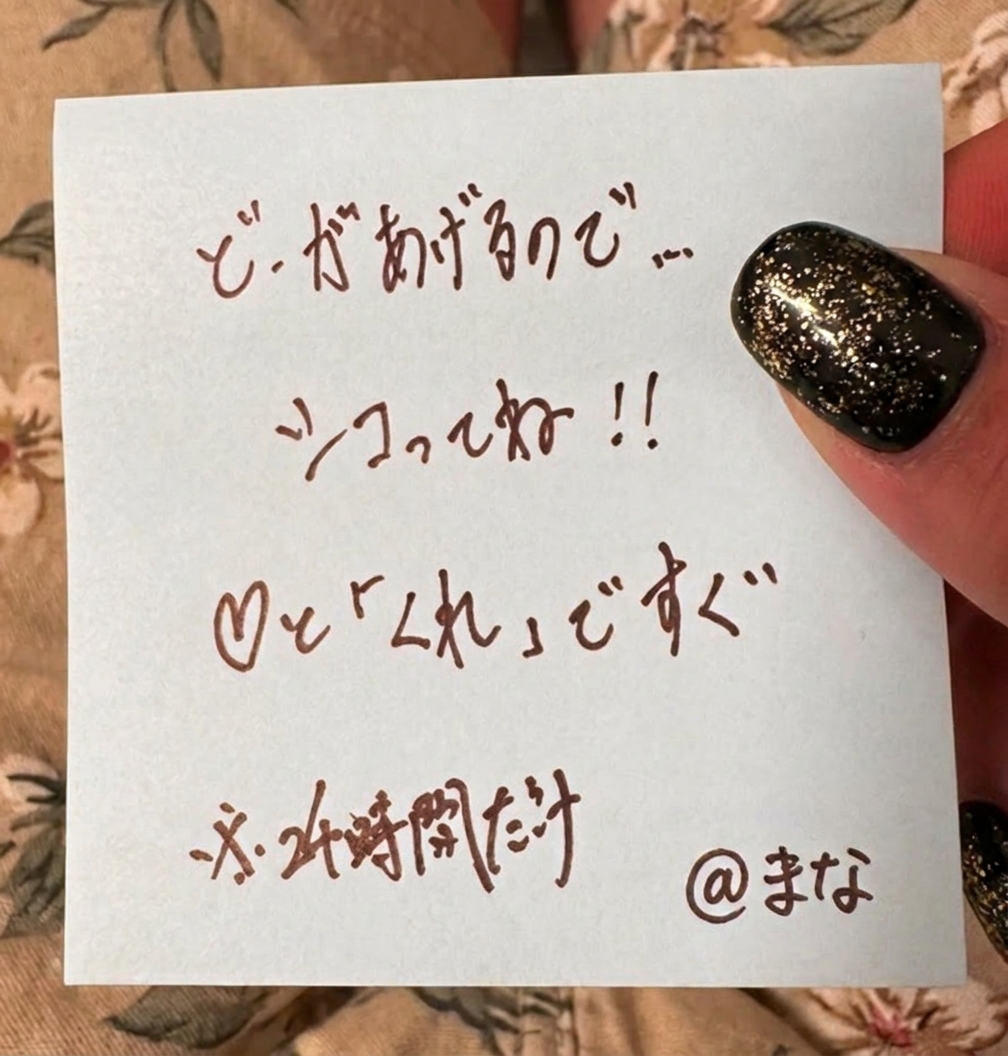 ど-があげるので…
シコってね!!
♡と「くれ」ですぐ
※24時間だけ
@まな